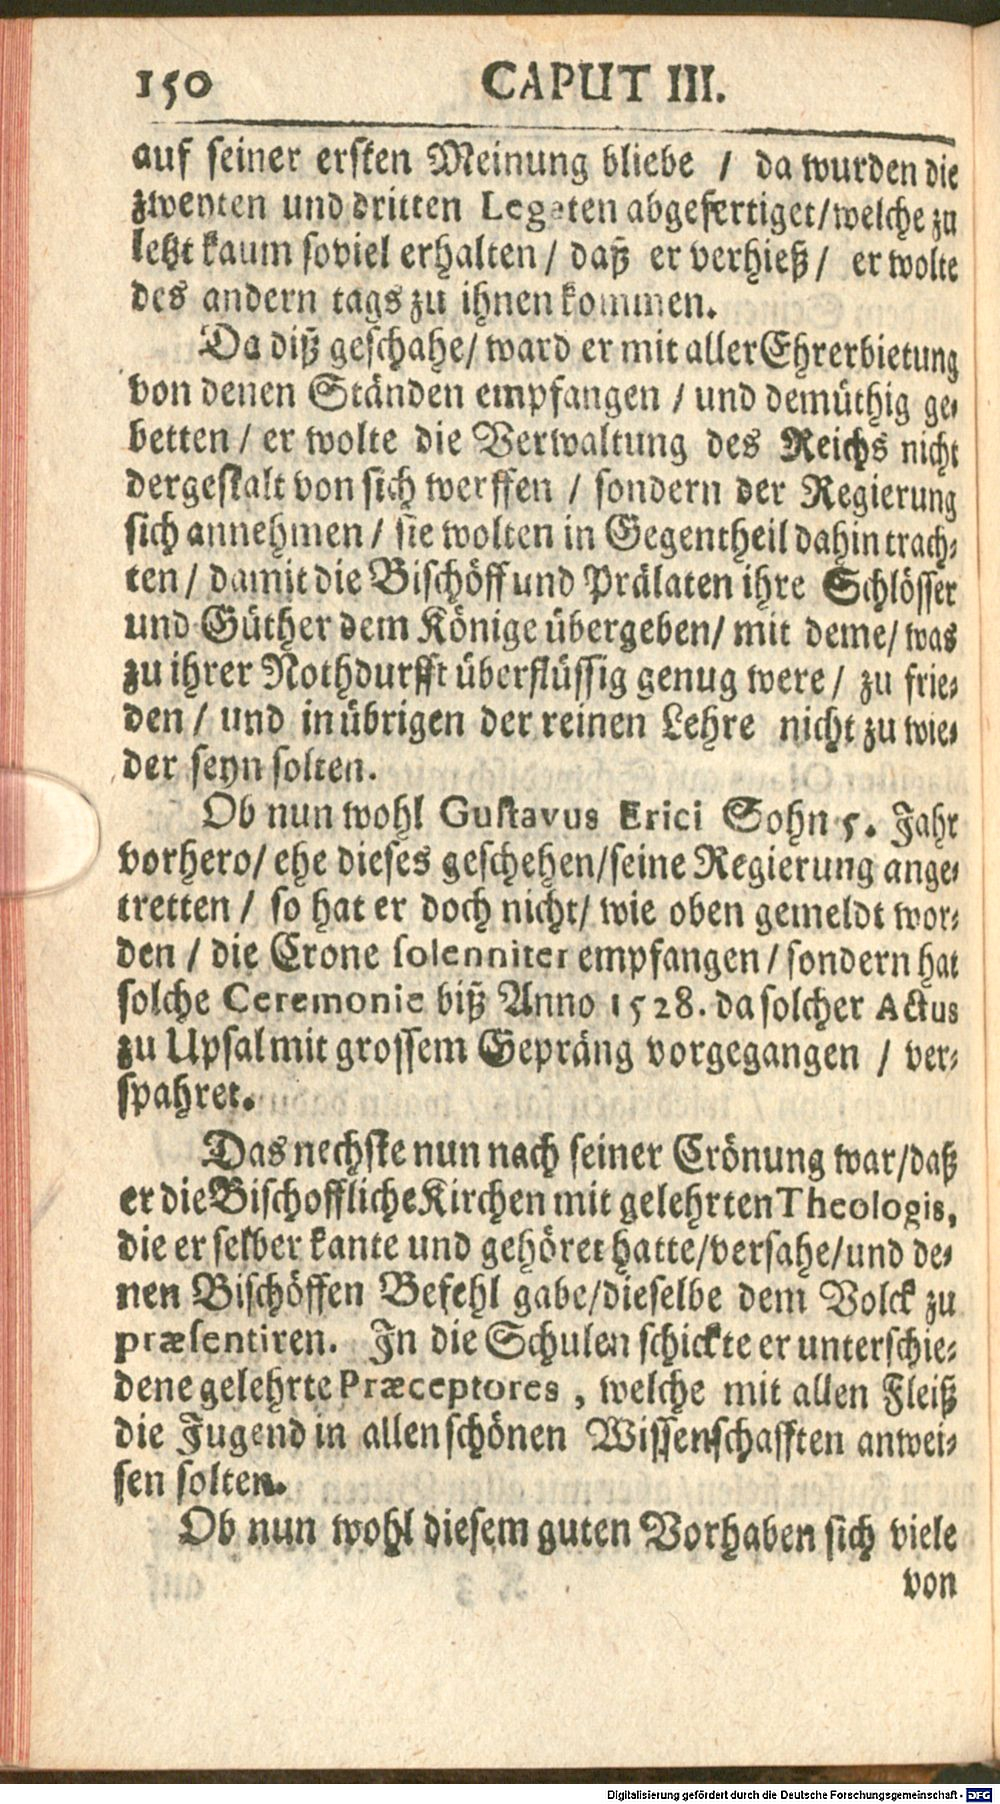 150 CAPUT III.
auf seiner ersten Meinung bliebe / da wurden die
zweyten und dritten Legaten abgefertiget/welche zu
letzt kaum soviel erhalten / daß er verhieß / er wolte
des andern tags zu ihnen kommen.
Da diß geschahe/ ward er mit aller Ehrerbietung
von denen Ständen empfangen / und demüthig ge-
betten / er wolte die Verwaltung des Reichs nicht
dergestalt von sich werffen / sondern der Regierung
sich annehmen / sie wolten in Gegentheil dahin trach-
ten / damit die Bischöff und Prälaten ihre Schlösser
und Güther dem Könige übergeben/ mit deme/ was
zu ihrer Nothdurfft überflüssig genug were / zu frie-
den / und in übrigen der reinen Lehre nicht zu wie-
der seyn solten.
Ob nun wohl Gustavus Erici Sohn 5. Jahr
vorhero/ ehe dieses geschehen/seine Regierung ange-
tretten / so hat er doch nicht/ wie oben gemeldt wor-
den / die Crone solenniter empfangen / sondern hat
solche Ceremonie biß Anno 1528. da solcher Actus
zu Upsal mit grossem Gepräng vorgegangen / ver-
spahret.
Das nechste nun nach seiner Crönung war/daß
er die Bischoffliche Kirchen mit gelehrten Theologis,
die er selber kante und gehöret hatte/versahe/und de-
nen Bischöffen Befehl gabe/dieselbe dem Volck zu
præsentiren. In die Schulen schickte er unterschie-
dene gelehrte Præceptores, welche mit allen Fleiß
die Jugend in allen schönen Wissenschafften anwei-
sen solten.
Ob nun wohl diesem guten Vorhaben sich viele
von
Digitalisierung gefördert durch die Deutsche Forschungsgemeinschaft - DFG